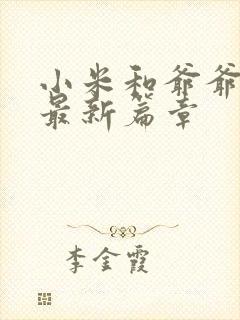 小米和爷爷
最新篇章
李金霞